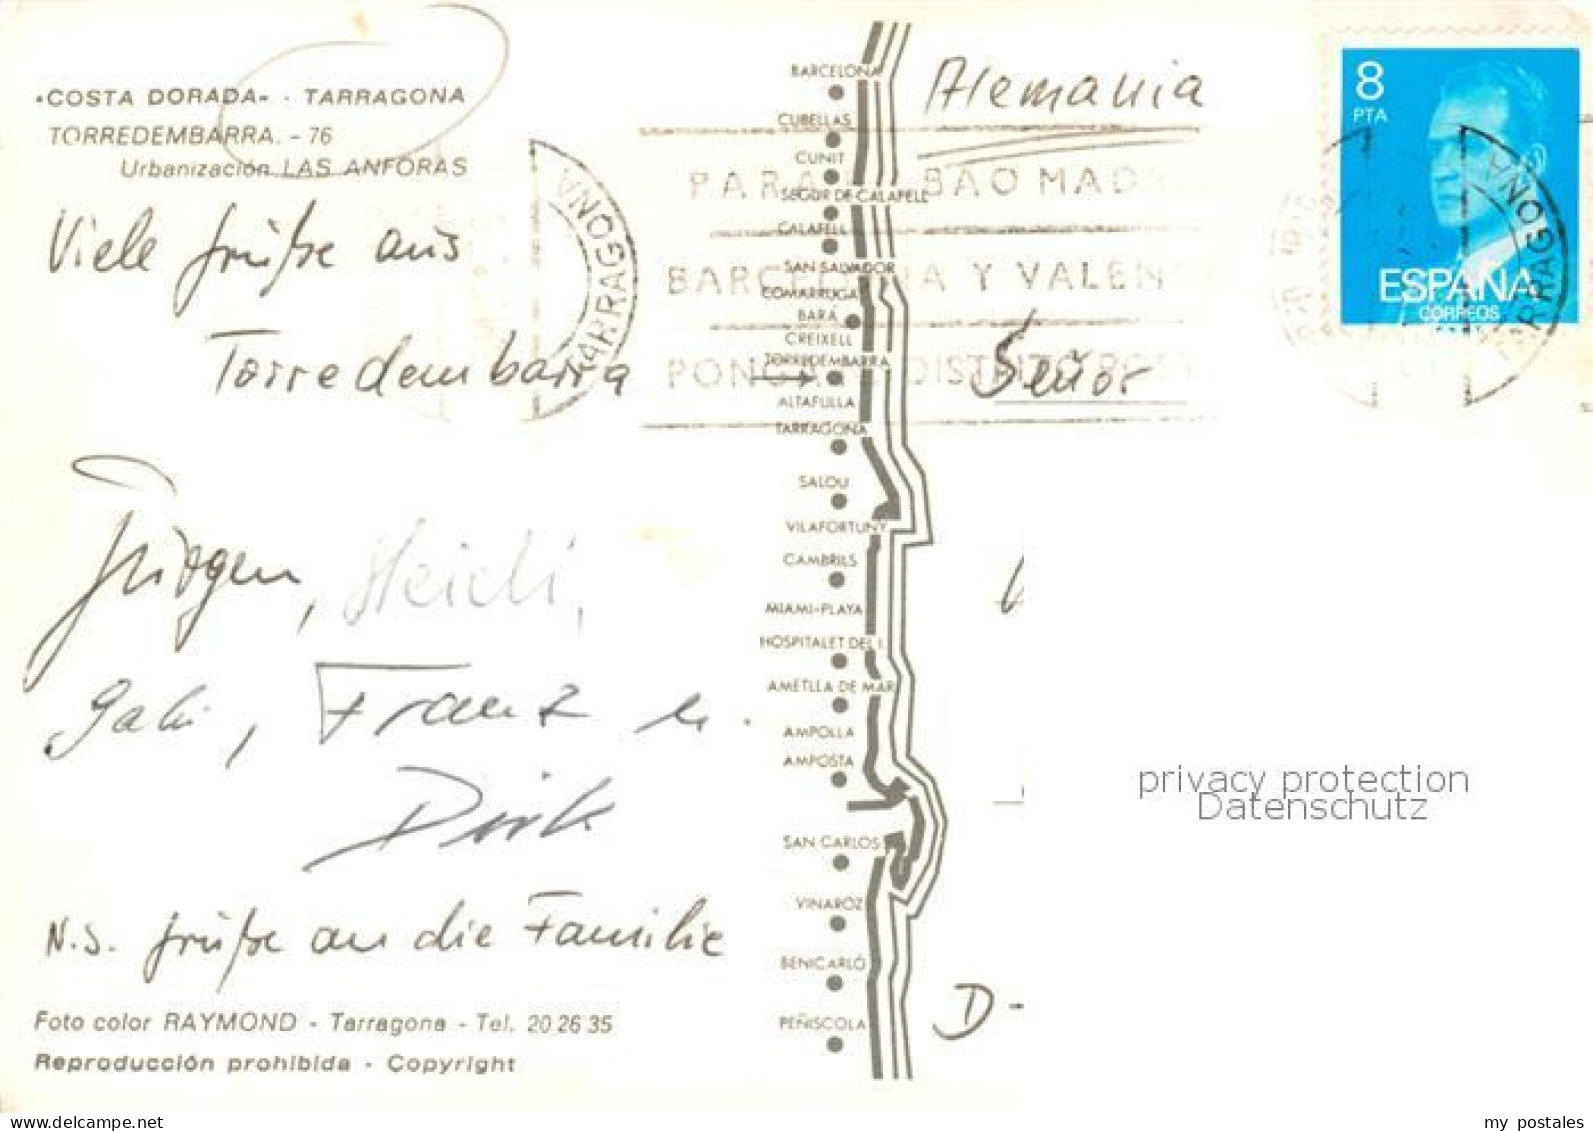 «COSTA DORADA» - TARRAGONA
TORREDEMBARRA. - 76
Urbanización LAS ANFORAS
Viele Grüße aus
Torredembarra
Jürgen, Heidi,
Gabi, Franz u.
Dirk
N.S. Grüße an die Familie
Foto color RAYMOND - Tarragona - Tel. 20 26 35
Reproducción prohibida - Copyright
BARCELONA
CUBELLAS
CUNIT
SEGUR DE CALAFELL
CALAFELL
SAN SALVADOR
COMARRUGA
BARÁ
CREIXELL
TORREDEMBARRA
ALTAFULLA
TARRAGONA
SALOU
VILAFORTUNY
CAMBRILS
MIAMI-PLAYA
HOSPITALET DEL I.
AMETLLA DE MAR
AMPOLLA
AMPOSTA
SAN CARLOS
VINAROZ
BENICARLÓ
PEÑISCOLA
Alemania
8
PTA
ESPAÑA
CORREOS
TARRAGONA
TARRAGONA
PARA BAO MADRI
BARCELONA Y VALEN
PONGA DISTRITO POST
Señor
D-
privacy protection
Datenschutz
my postales
www.delcampe.net